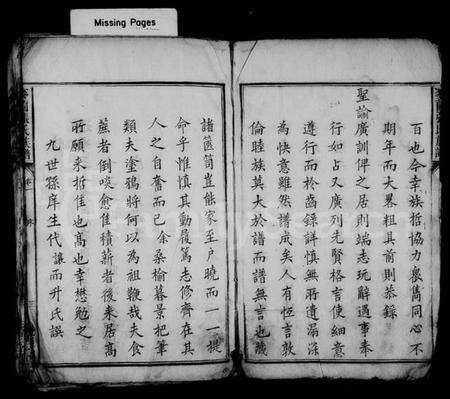 Missing Pages
百也今幸族哲協力衆儁同心不
期年而大畧粗具前則恭錄
聖諭廣訓俾之居則端志玩辭過事奉
行如占又廣列先賢格言使細意
遵行而於齒錄詳慎無所遺漏深
為快意雖然譜成矣人有恆言敦
倫睦族莫大於譜而譜無言也藏
諸篋笥豈能家至戶曉而一一提
命乎惟慎其動履篤志修齊在其
人之自奮而已余桑榆暮景把筆
類夫塗鴉將何以為祖鞭哉夫食
蔗者倒啖愈佳積薪者後來居高
所願來哲惟也高也幸懋勉之
九世孫庠生代讓而升氏譔